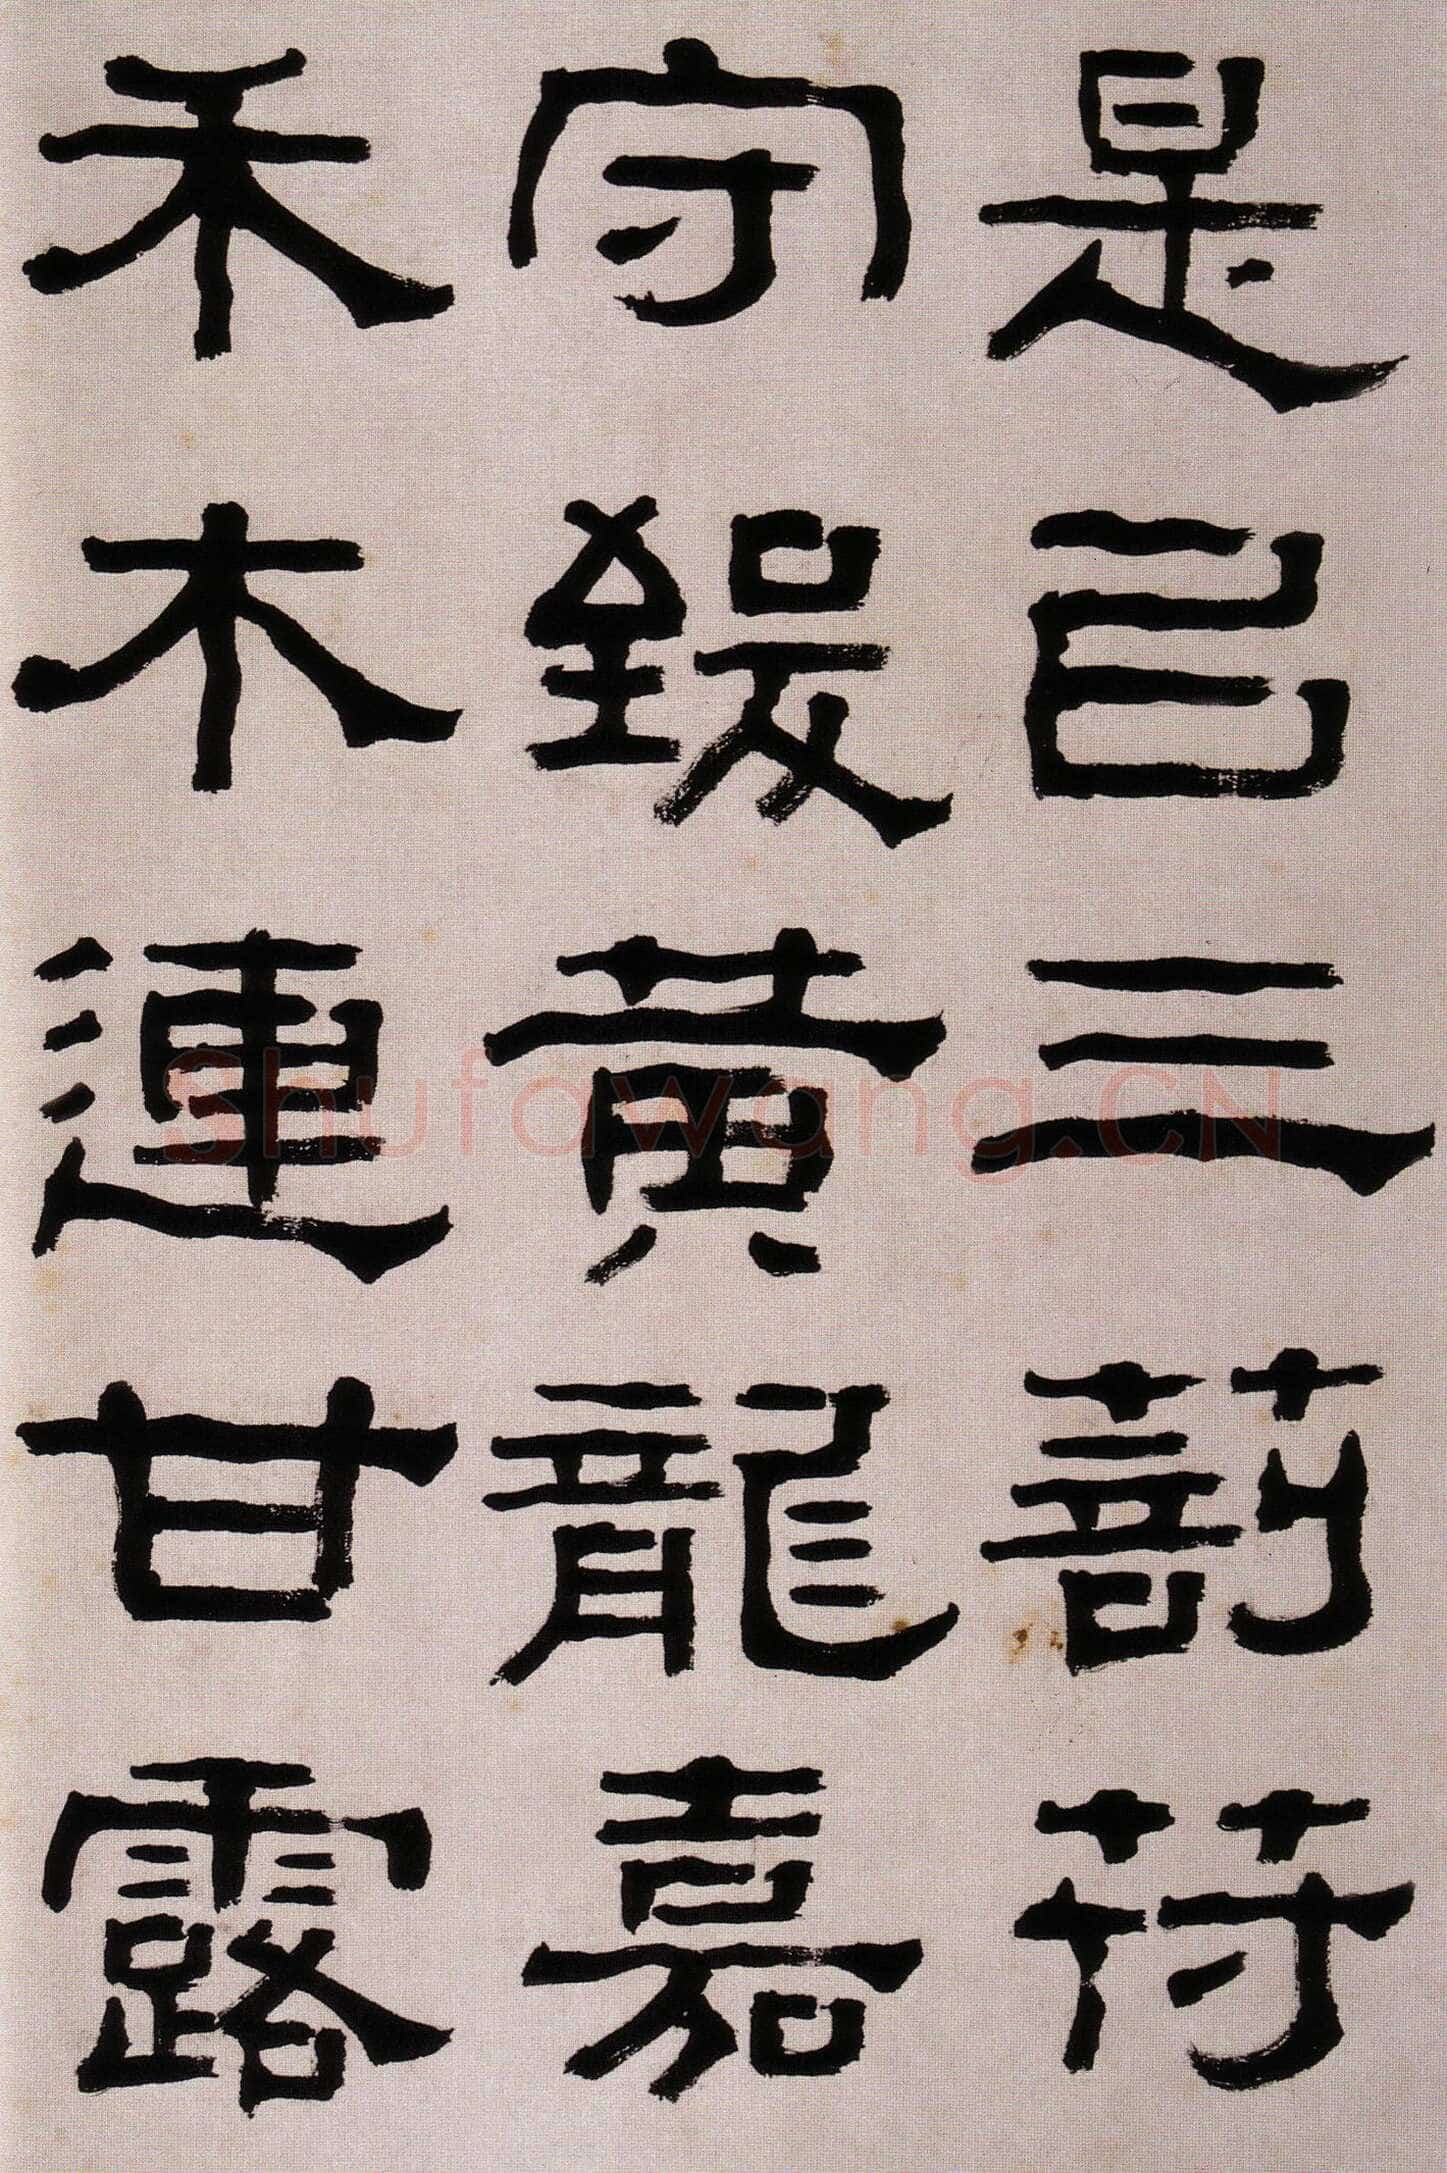 是㠯三剖苻
守致黃龍嘉
禾木連甘露
Shufawang.CN